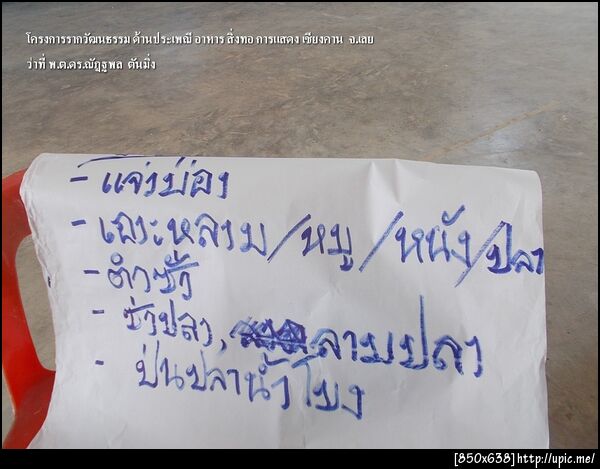 โครงการรากวัฒนธรรม ด้านประเพณี อาหาร สิ่งทอ การแสดง เชียงคาน จ.เลย
ว่าที่ พ.ต.ดร.ณัฎฐพล ตันมิ่ง
- แจ่วบ่อง
- เอาะหลาม/หมู/หนัง/ปลา
- ตำซั้ว
- ซ่าปลา, ลาบปลา
- ป่นปลาน้ำโขง
[850x638]http://upic.me/